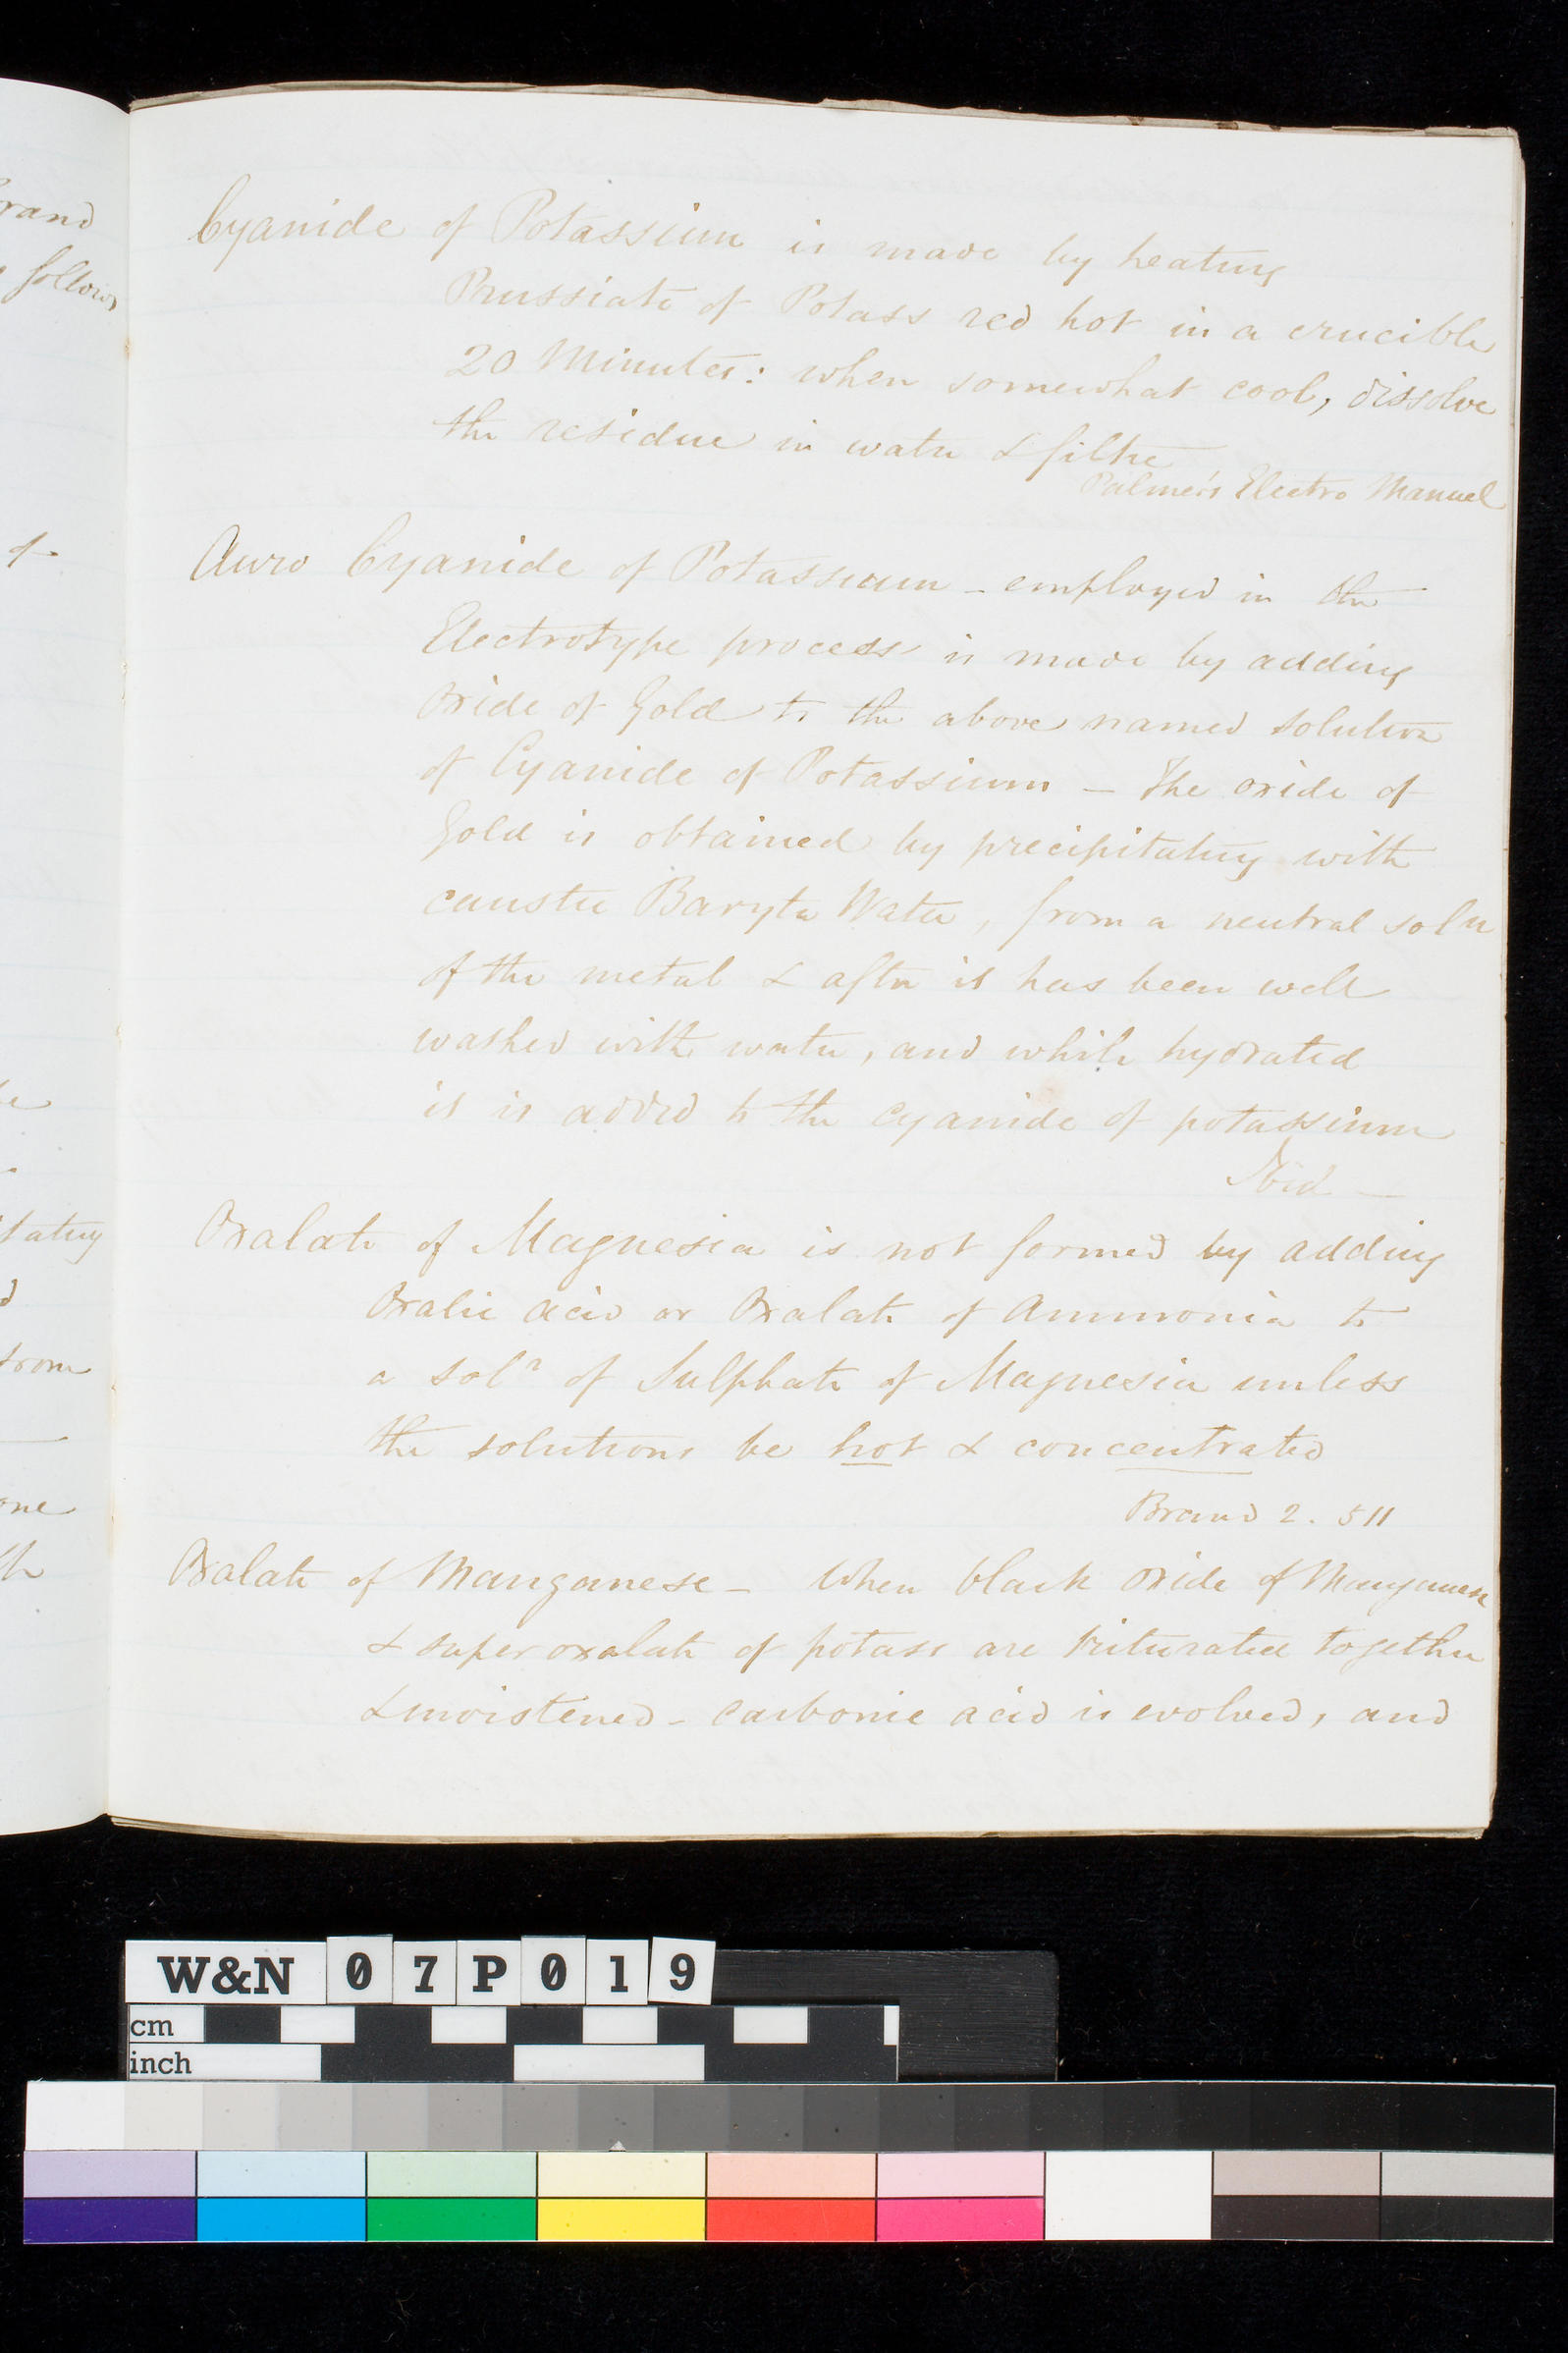 rand
follows
of
Cyanide of Potassium is made by heating
Prussiate of Potass red hot in a crucible
20 Minutes: when somewhat cool, dissolve
the residue in water & filtre
Palmer's Electro Manuel
Auro Cyanide of Potassium - employed in the
Electrotype process is made by adding
Oxide of Gold to the above named solution
of Cyanide of Potassium - The oxide of
Gold is obtained by precipitating with
caustic Baryta Water, from a neutral soln
of the metal & after it has been well
washed with water, and while hydrated
it is added to the cyanide of potassium
Ibid -
Oxalate of Magnesia is not formed by adding
Oxalic acid or Oxalate of Ammonia to
a soln of Sulphate of Magnesia unless
the solutions be hot & concentrated
Brand 2. 511
Oxalate of Manganese - When black oxide of Manganese
& superoxalate of potass are triturated together
& moistened - carbonic acid is evolved, and
W&N 07P019
cm
inch